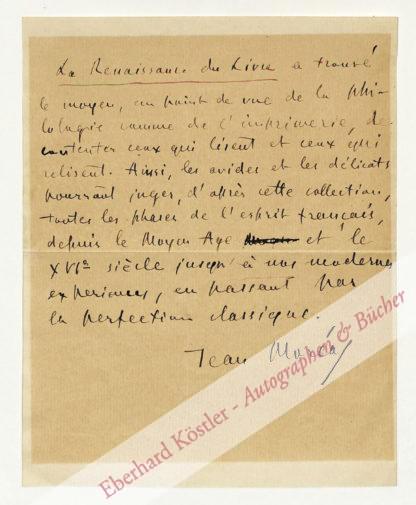 La Renaissance du Livre a trouvé
le moyen, au point de vue de la phi-
lologie comme de l'imprimerie, de
contenter ceux qui lisent et ceux qui
relisent. Ainsi, les avides et les délicats
pourront juger, d'après cette collection,
toutes les phases de l'esprit français,
depuis le Moyen Age et le
XVIe siècle jusqu'à nos modernes
expériences, en passant par
la perfection classique.
Jean Moréas
Eberhard Köstler - Autographen & Bücher